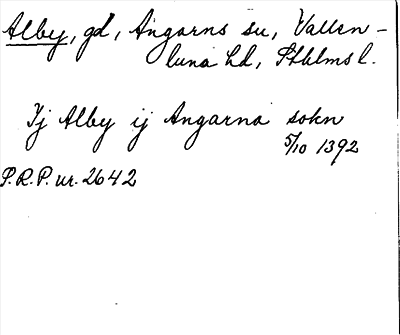 Alby, gd, Angarns su, Vallen-
tuna hd, Sthlms l.
Ij Alby ij Angarna sokn
5/10 1392
S.R.P. nr. 2642